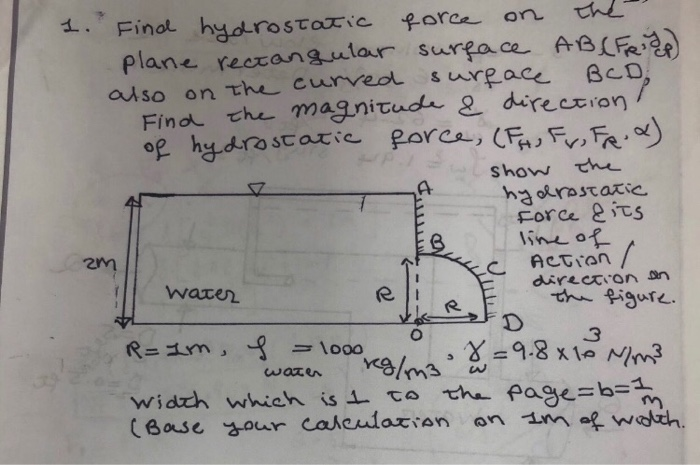 1. Find hydrostatic force on the
plane rectangular surface AB (F_R, y_cp)
also on the curved surface BCD,
Find the magnitude & direction
of hydrostatic force, (F_H, F_V, F_R, α)
show the
hydrostatic
Force & its
line of
Action /
direction on
the figure.
A
B
C
2m
water
R
R
O
D
R = 1m, ρ_water = 1000 kg/m³, γ_w = 9.8 x 10³ N/m³
width which is ⊥ to the page = b = 1 m
(Base your calculation on 1m of width.